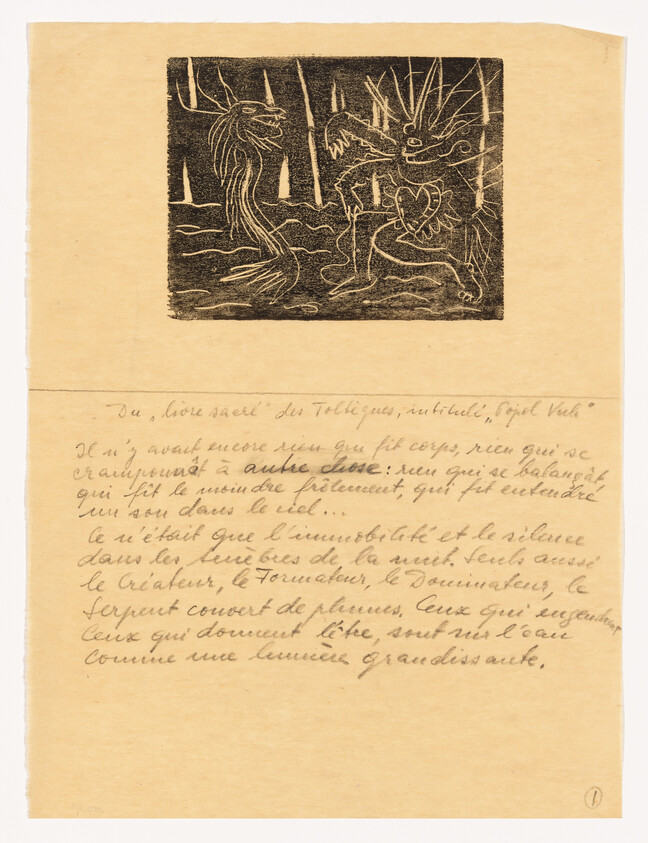 Du „livre sacré" des Toltèques, intitulé „Popol Vuh"
Il n'y avait encore rien qui fit corps, rien qui se
cramponnât à autre chose : rien qui se balançât,
qui fit le moindre frôlement, qui fit entendre
un son dans le ciel...
Ce n'était que l'immobilité et le silence
dans les tenèbres de la nuit. Seuls aussi
le Créateur, le Formateur, le Dominateur, le
Serpent couvert de plumes. Ceux qui engendrent
Ceux qui donnent l'être, sont sur l'eau
comme une lumière grandissante.
1